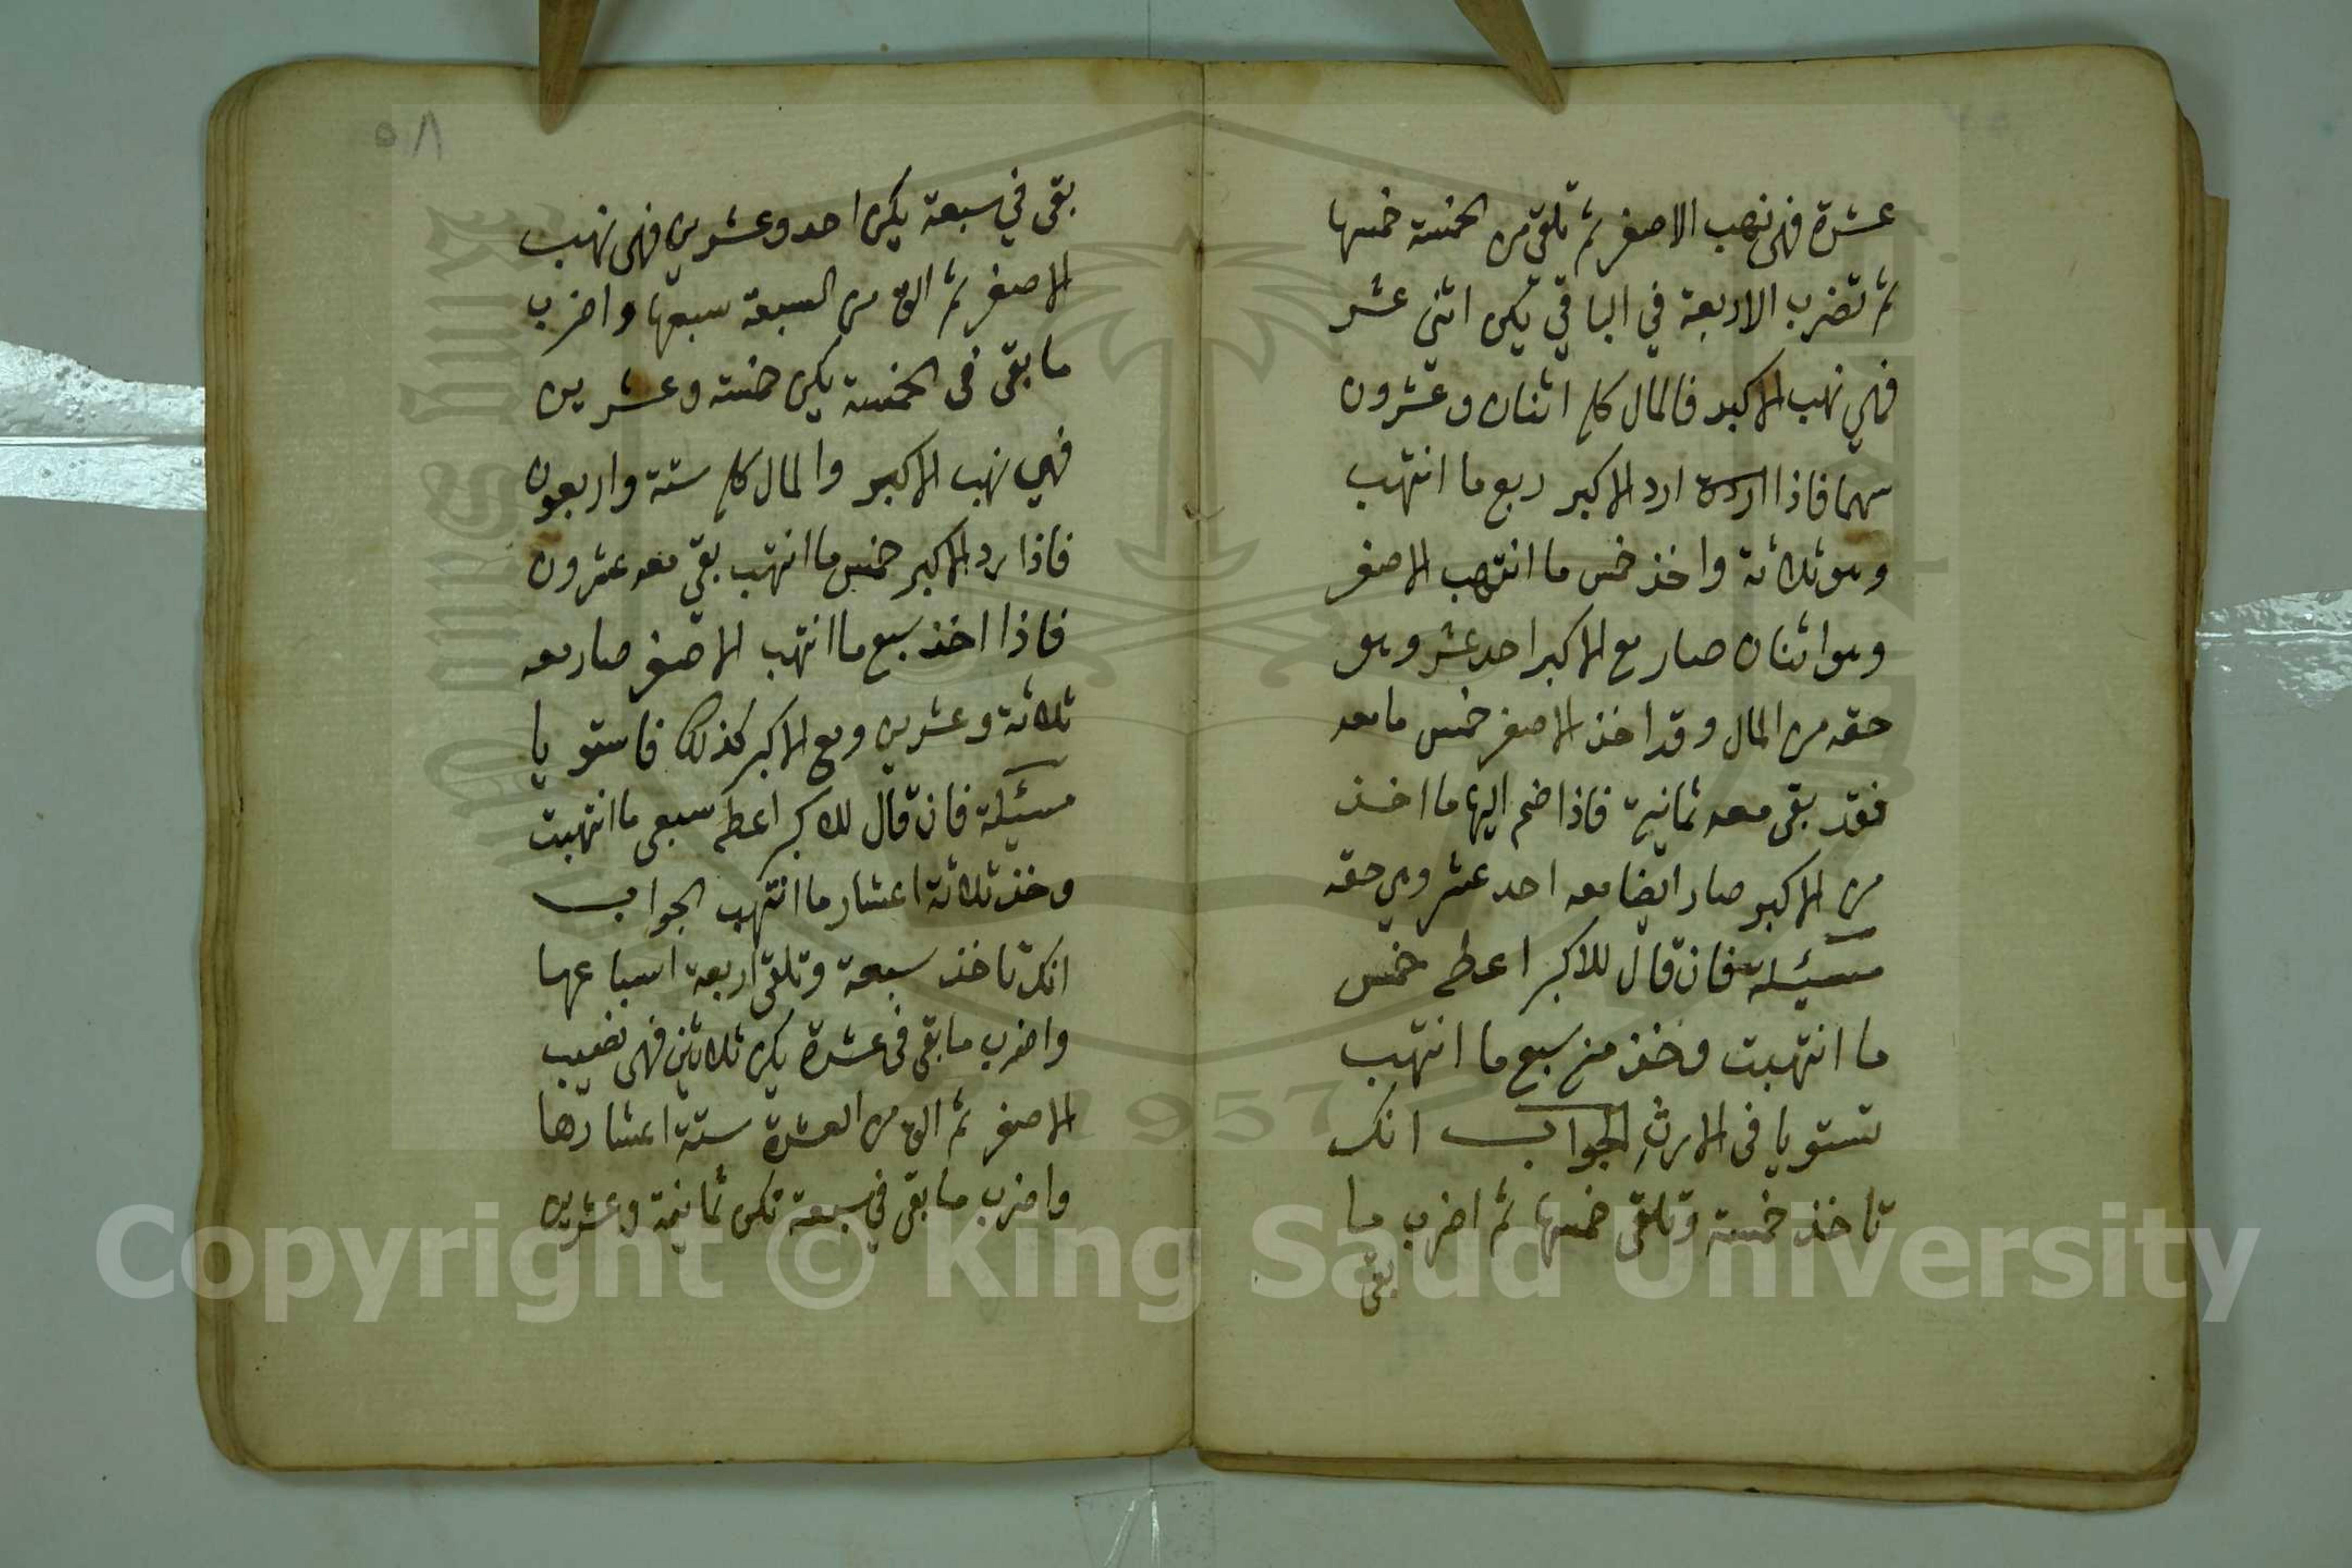 عشرة فهى نهب الاصغر ثم تلقى من الخمسة خمسها
ثم تضرب الاربعة في الباقي تكن اثنى عشر
فهي نهب الاكبر فالمال كله اثنان وعشرون
سهما فاذا ارد الاكبر ربع ما انتهب
وهو ثلاثة واخذ خمس ما انتهب الاصغر
وهو اثنان صار مع الاكبر احد عشر وهو
حقه من المال وقد اخذ الاصغر خمس ما معه
فقد بقى معه ثمانية فاذا ضم اليها ما اخذ
من الاكبر صار ايضا معه احد عشر وهي حقه
مسئلة فان قال للاكبر اعطه خمس
ما انتهبت وخذ منه سبع ما انتهب
تستويا فى الارث الجواب انك
تاخذ خمسة وتلقى خمسها ثم اضرب ما
بقى
٥٨
بقى في سبعة يكن احد وعشرين فهى نهب
الاصغر ثم الق من السبعة سبعها واضرب
ما بقى فى الخمسة يكن خمسة وعشرين
فهي نهب الاكبر والمال كله ستة واربعون
فاذا رد الاكبر خمس ما انتهب بقي معه عشرون
فاذا اخذ سبع ما انتهب الاصغر صار معه
ثلاثة وعشرين ومع الاكبر كذلك فاستويا
مسئلة فان قال للاكبر اعطه سبعى ما انتهبت
وخذ ثلاثة اعشار ما انتهب الجواب
انك تاخذ سبعة وتلقى اربعة اسباعها
واضرب ما بقى فى عشرة يكن ثلاثين فهى نصيب
الاصغر ثم الق من العشرة ستة اعشارها
واضرب ما بقى في سبعة تكن ثمانية وعشرين
Copyright © King Saud University
King Saud University
1957